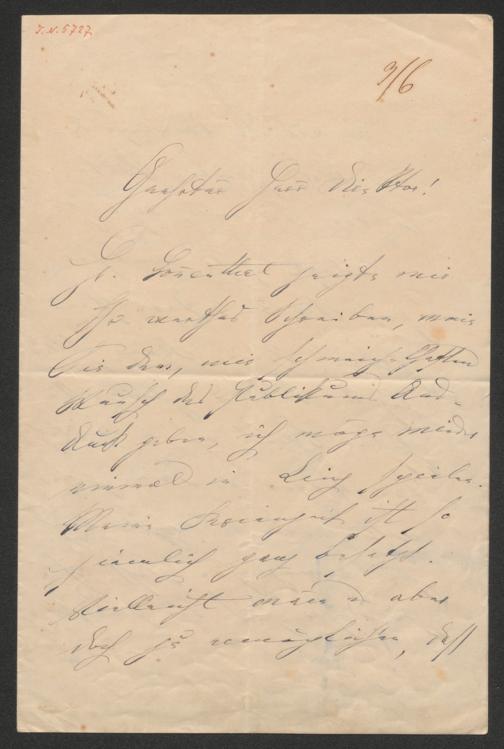 I.N. 5727
9/6
Geehrter Herr Direktor!
Hr. Rosenthal zeigte mir
Ihr werthes Schreiben, worin
Sie dem, mir schmeichelhaften
Wunsch des Publikums Aus-
druck geben, ich möge wieder
einmal in Linz spielen.
Meine Ferienzeit ist so
ziemlich ganz besetzt.
Vielleicht wäre es aber
doch zu ermöglichen, daß